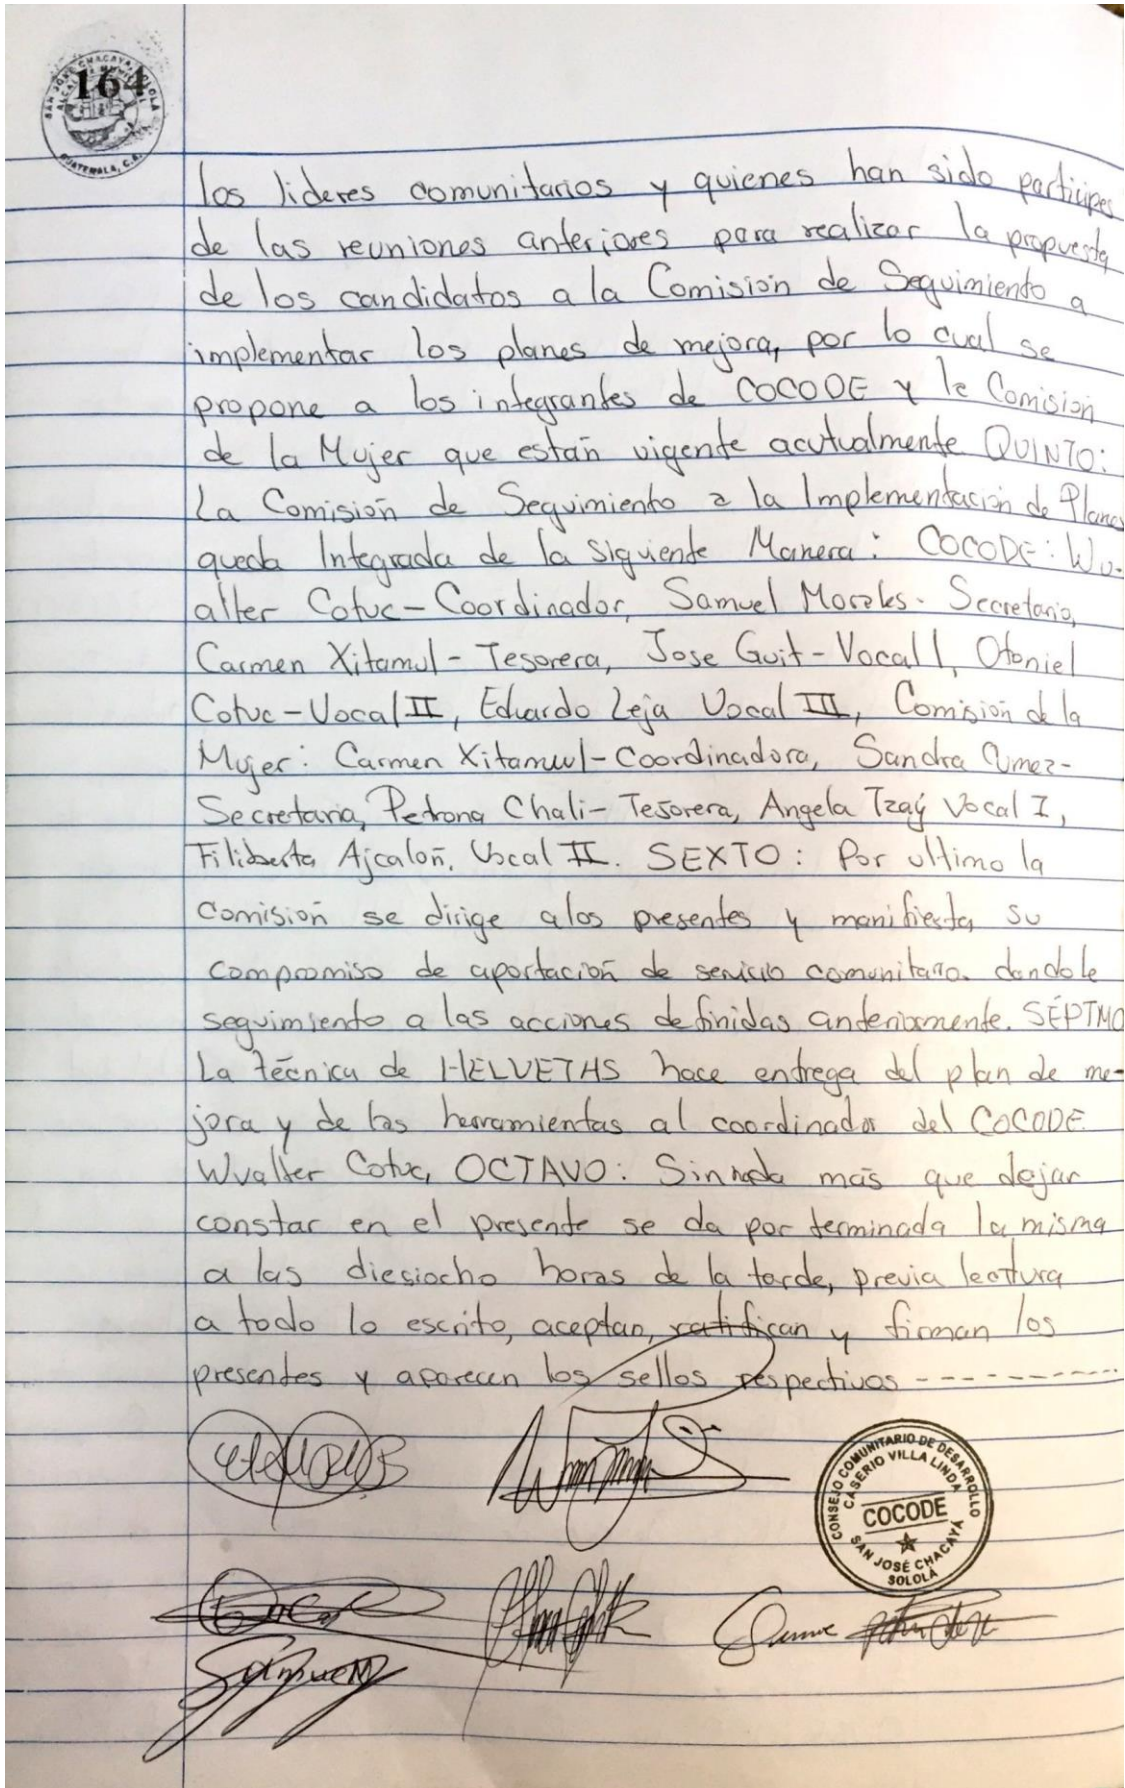 164
SAN JOSE CHACAYA, SOLOLA
ALCALDIA MUNICIPAL
GUATEMALA, C.A.
los lideres comunitarios y quienes han sido participes
de las reuniones anteriores para realizar la propuesta
de los candidatos a la Comisión de Seguimiento a
implementar los planes de mejora, por lo cual se
propone a los integrantes de COCODE y la Comisión
de la Mujer que están vigente acutualmente QUINTO:
La Comisión de Seguimiento a la Implementación de Planes
queda Integrada de la Siguiente Manera: COCODE: Wu-
alter Cotuc-Coordinador, Samuel Morales- Secretario,
Carmen Xitamul- Tesorera, Jose Guit-Vocal I, Otoniel
Cotuc-Vocal II, Eduardo Leja Vocal III, Comisión de la
Mujer: Carmen Xitamuul-Coordinadora, Sandra Cumez-
Secretaria, Petrona Chali- Tesorera, Angela Tzay Vocal I,
Filiberta Ajcalón, Vocal II. SEXTO: Por ultimo la
comisión se dirige a los presentes y manifiesta su
compromiso de aportación de servicio comunitario. dandole
seguimiento a las acciones definidas anteriormente. SÉPTMO
La técnica de HELVETAS hace entrega del plan de me-
jora y de las herramientas al coordinador del COCODE
Wualter Cotuc, OCTAVO: Sin nada más que dejar
constar en el presente se da por terminada la misma
a las diesiocho horas de la tarde, previa lecttura
a todo lo escrito, aceptan, ratifican y firman los
presentes y aparecen los sellos respectivos ----------
CONSEJO COMUNITARIO DE DESARROLLO
CASERIO VILLA LINDA
COCODE
SAN JOSÉ CHACAYÁ
SOLOLÁ